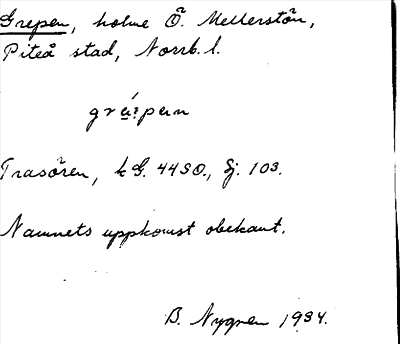 Grepen, holme Ö. Mellerstön,
Piteå stad, Norrb. l.
Trasören, k G. 44 SO., Sj. 103.
Namnets uppkomst obekant.
B. Nygren 1934.